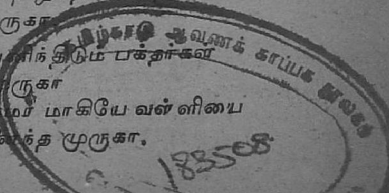 ருகா
ணிந்திடும் பக்தர்கள்
ருகா
மாகியே வள்ளியை
ந்த முருகா.
தமிழ்நாடு ஆவணக் காப்பக நூலகம்
183508